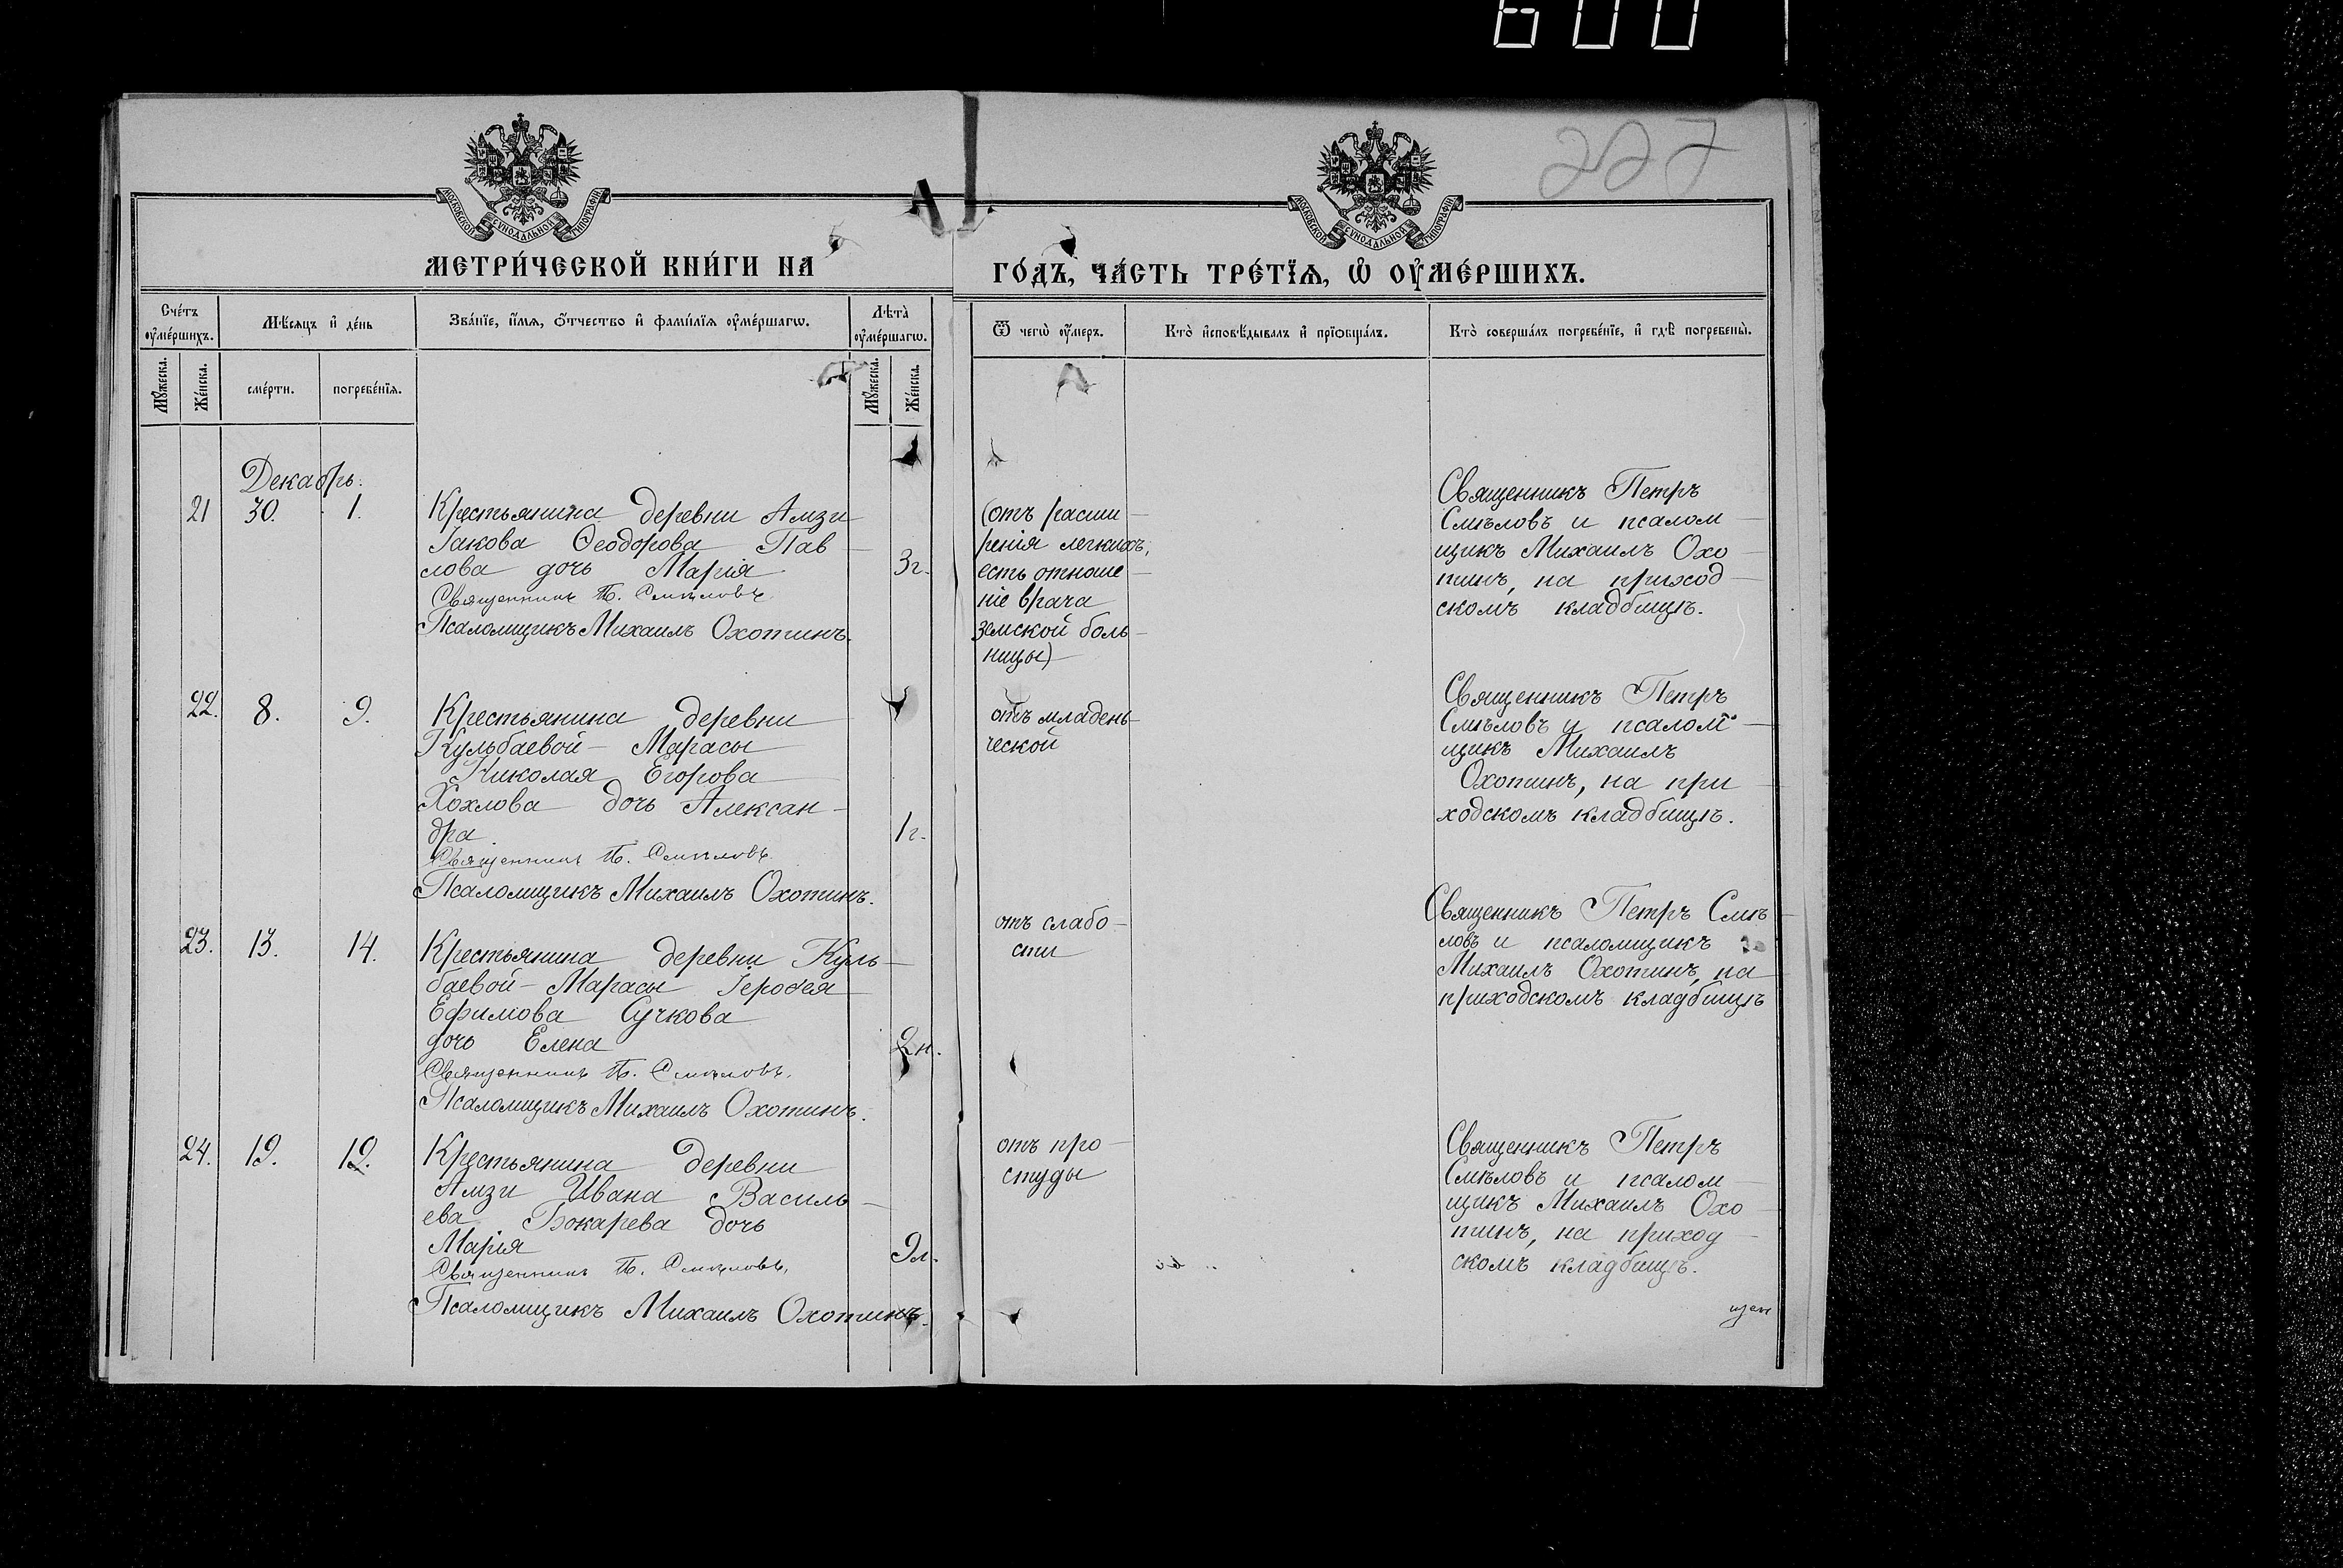 600
227
МОСКОВСКОЙ СѴНОДАЛЬНОЙ ТИПОГРАФІИ
МОСКОВСКОЙ СѴНОДАЛЬНОЙ ТИПОГРАФІИ
МЕТРИ́ЧЕСКОЙ КНИ́ГИ НА
ГО́ДЪ, ЧА́СТЬ ТРЕ́ТЇѦ, Ѡ҆ ОУ҆МЕ́РШИХЪ.
Сче́тъ
оу҆ме́ршихъ.
Мѣ́сяцъ и҆ де́нь
Зва́нїе, и҆́мѧ, ѻ҆́тчество и҆ фами́лїѧ оу҆ме́ршагѡ.
Лѣ̀та
оу҆ме́ршагѡ.
Ѿ чегѡ̀ оу҆́меръ.
Кто̀ и҆сповѣ́дывалъ и҆ прїѡбща́лъ.
Кто̀ соверша́лъ погребе́нїе, и҆ гдѣ̀ погребены̀.
Мꙋ́жеска.
Же́нска.
сме́рти.
погребе́нїѧ.
Мꙋ́жеска.
Же́нска.
Декабрь.
21
30.
1.
Крестьянина деревни Амзи
Іакова Ѳеодорова Пав
лова дочь Марія
Священникъ П. Смѣловъ.
Псаломщикъ Михаилъ Охотинъ.
3г.
(отъ расши
ренія легкихъ,
есть отноше
ніе врача
земской боль
ницы)
Священникъ Петръ
Смѣловъ и псалом
щикъ Михаилъ Охо
тинъ, на приход
скомъ кладбищѣ.
22.
8.
9.
Крестьянина деревни
Кульбаевой - Марасы
Николая Егорова
Хохлова дочь Алексан-
дра.
Священникъ П. Смѣловъ.
Псаломщикъ Михаилъ Охотинъ.
1г.
отъ младен-
ческой
Священникъ Петръ
Смѣловъ и псалом
щикъ Михаилъ
Охотинъ, на при
ходскомъ кладбищѣ.
23.
13.
14.
Крестьянина деревни Куль-
баевой - Марасы Іероѳея
Ефимова Сучкова
дочь Елена
Священникъ П. Смѣловъ.
Псаломщикъ Михаилъ Охотинъ.
2н.
отъ слабо-
сти
Священникъ Петръ Смѣ
ловъ и псаломщикъ
Михаилъ Охотинъ, на
приходскомъ кладбищѣ
24.
19.
19.
Крестьянина деревни
Амзи Ивана Василь-
ева Бокарева дочь
Марія
Священникъ П. Смѣловъ.
Псаломщикъ Михаилъ Охотинъ.
9л.
отъ про
студы
Священникъ Петръ
Смѣловъ и псалом
щикъ Михаилъ Охо
тинъ, на приход
скомъ кладбищѣ.